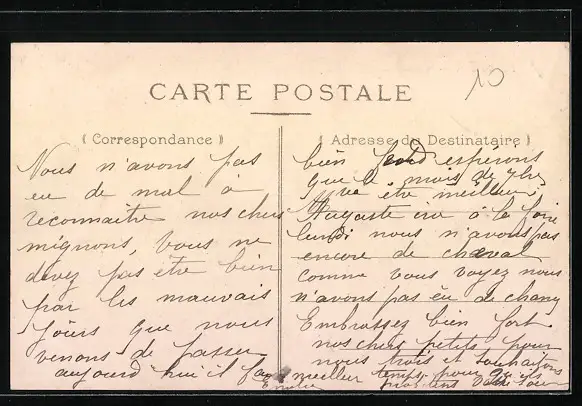 10
CARTE POSTALE
( Correspondance )
Nous n'avons pas
eu de mal à
reconnaitre nos chers
mignons, vous ne
devez pas etre bien
par les mauvais
jours que nous
venons de passer
aujourd hui il fai
( Adresse du Destinataire )
bien froid espérons
que le mois de 7bre
va etre meilleur,
Auguste ira à la foire
lundi nous n'avons pas
encore de cheval
comme vous voyez nous
n'avons pas eu de chang
Embrassez bien fort
nos chers petits pour
nous trois et souhaitons
meilleur temps pour qu'ils